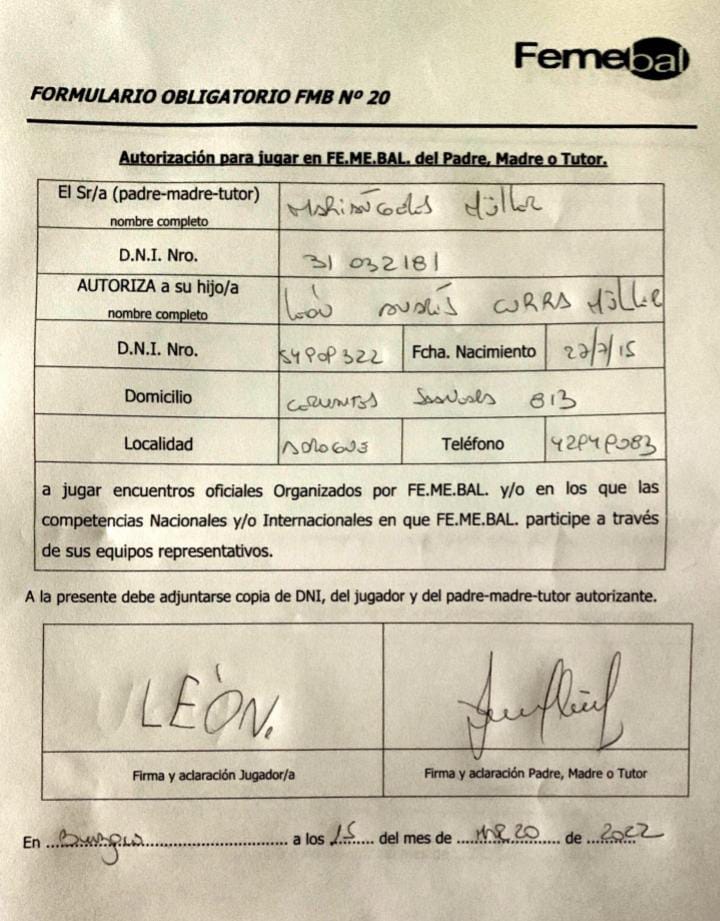 Femebal
FORMULARIO OBLIGATORIO FMB Nº 20
Autorización para jugar en FE.ME.BAL. del Padre, Madre o Tutor.
El Sr/a (padre-madre-tutor)
nombre completo
Müller
D.N.I. Nro.
31 032181
AUTORIZA a su hijo/a
nombre completo
León CURRA Müller
D.N.I. Nro.
Fcha. Nacimiento
27/7/15
Domicilio
813
Localidad
ADROGUE
Teléfono
a jugar encuentros oficiales Organizados por FE.ME.BAL. y/o en los que las
competencias Nacionales y/o Internacionales en que FE.ME.BAL. participe a través
de sus equipos representativos.
A la presente debe adjuntarse copia de DNI, del jugador y del padre-madre-tutor autorizante.
LEÓN.
Firma y aclaración Jugador/a
Firma y aclaración Padre, Madre o Tutor
En a los 15 del mes de de 2022